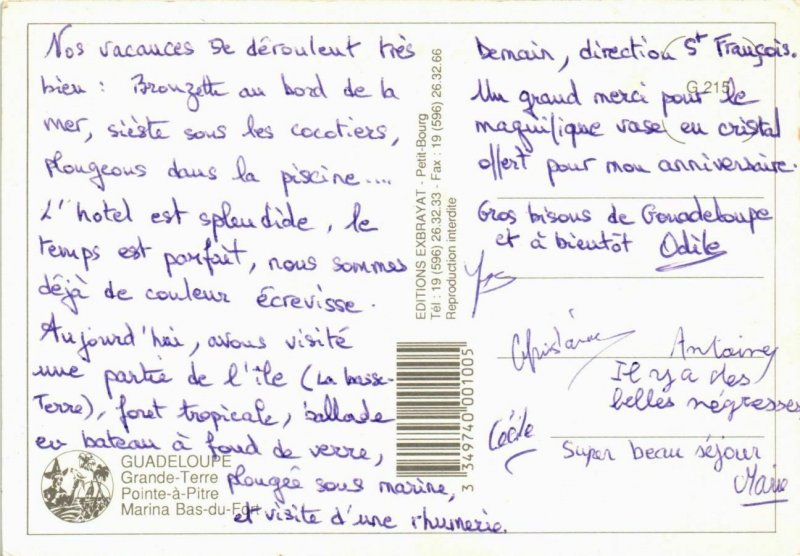 Nos vacances se déroulent très
bien : Bronzette au bord de la
mer, sièste sous les cocotiers,
plongeons dans la piscine....
L'hotel est splendide, le
temps est parfait, nous sommes
déjà de couleur écrevisse.
Aujourd'hui, avons visité
une partie de l'île (la basse-
Terre), foret tropicale, ballade
en bateau à fond de verre,
plongée sous marine,
et visite d'une rhumerie.
GUADELOUPE
Grande-Terre
Pointe-à-Pitre
Marina Bas-du-Fort
EDITIONS EXBRAYAT - Petit-Bourg
Tél : 19 (596) 26.32.33 - Fax : 19 (596) 26.32.66
Reproduction interdite
3 349740 001005
G 215
Demain, direction St François.
Un grand merci pour le
magnifique vase en cristal
offert pour mon anniversaire.
Gros bisous de Gouadeloupe
et à bientôt Odile
Yves
Ghislaine
Antoine
Il y a des
belles négresses
Cécile
Super beau séjour
Marie